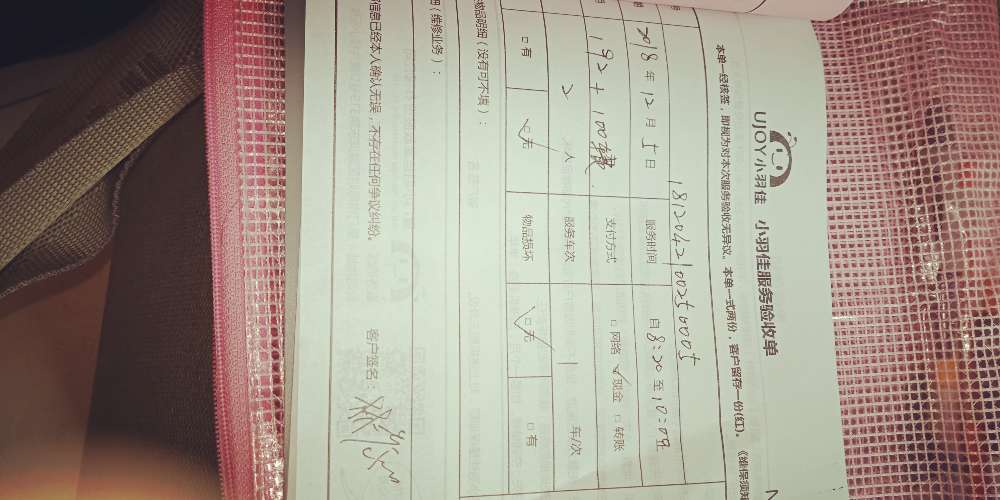 UJOY小羽佳 小羽佳服务验收单
本单一经核签，即视为对本次服务验收无异议。本单一式两份，客户留存一份(红)。《维保须知
18120421002500005
2018年12月5日 服务时间 自8:20至10:05
192+100 支付方式 □网络 ✓现金 □转账
2 人 服务车次 1 车/次
□有 ☑无 物品损坏 ☑无 □有
物品明细（没有可不填）：
（维修业务）：
信息已经本人确认无误，不存在任何争议纠纷。 客户签名：